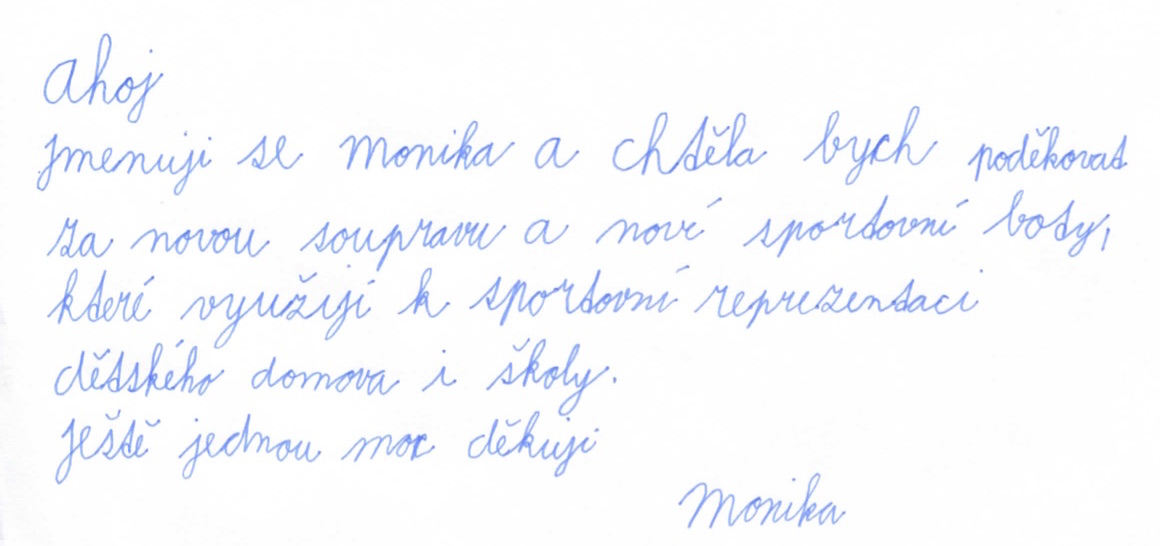 Ahoj
jmenuji se Monika a chtěla bych poděkovat
za novou soupravu a nové sportovní boty,
které využiji k sportovní reprezentaci
dětského domova i školy.
Ještě jednou moc děkuji
Monika